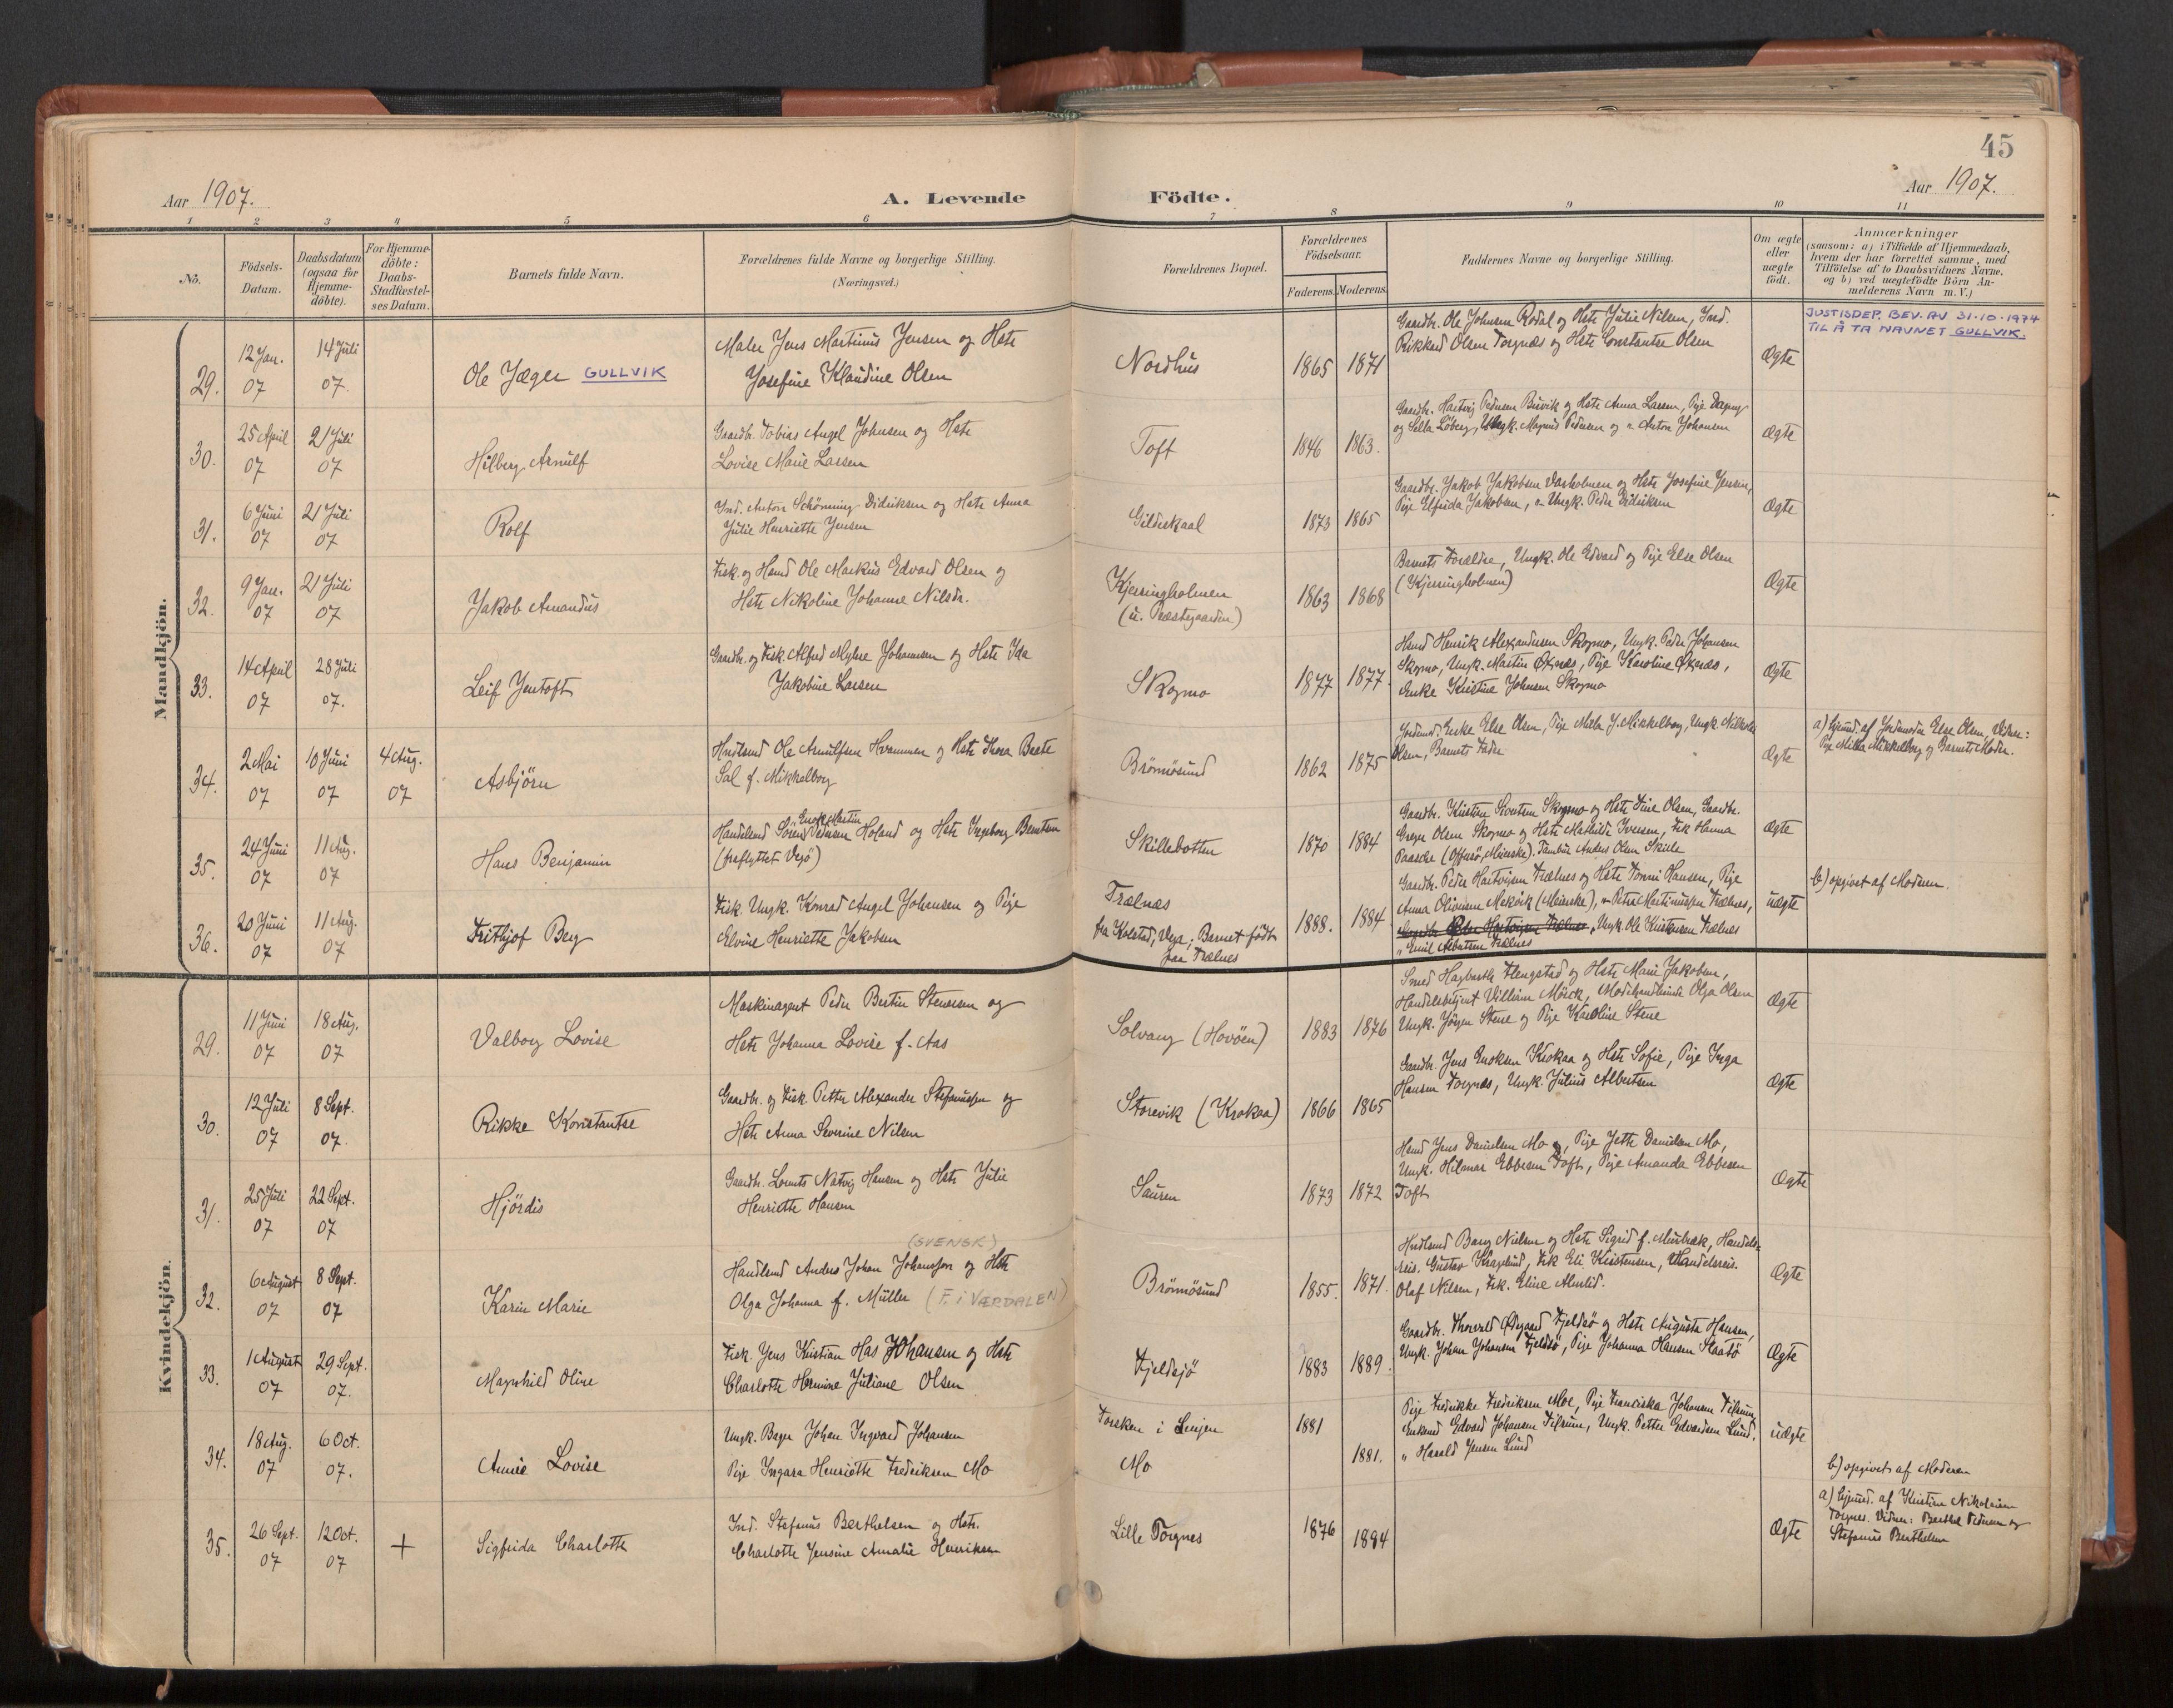 45
Aar 1907.
A. Levende Födte.
Aar 1907.
1 2 3 4 5 6 7 8 9 10 11
No.
Födsels-Datum.
Daabsdatum (ogsaa for Hjemme-döbte).
For Hjemme-döbte: Daabs-Stadfæstel-ses Datum.
Barnets fulde Navn.
Forældrenes fulde Navne og borgerlige Stilling.
(Næringsvei.)
Forældrenes Bopæl.
Forældrenes Födselsaar.
Faderens. Moderens.
Faddernes Navne og borgerlige Stilling.
Om ægte eller uægte födt.
Anmærkninger
(saasom: a) i Tilfælde af Hjemmedaab, hvem der har forrettet samme, med Tilföielse af to Daabsvidners Navne, og b) ved uægtefödte Börn An-melderens Navn m. V.)
Mandkjön.
29. 12 Jan. 07 14 Juli 07. Ole Jæger GULLVIK
Maler Jens Martinus Jensen og Hstr
Josefine Klaudine Olsen
Nordhus 1865 1871
Gaardbr. Ole Johnsen Rodal og Hstr Julie Nilsen, Ind.
Rikkard Olsen Torgnæs og Hstr Constantse Olsen
Ægte
JUSTISDEP. BEV. AV 31-10-1974
TIL Å TA NAVNET GULLVIK.
30. 25 April 07 21 Juli 07 Hilberg Arnulf
Gaardb. Tobias Angel Johnsen og Hstr
Lovise Marie Larsen
Toft 1846 1863.
Gaardbr. Hartvig Pedersen Bursvik og Hstr Anna Larsen, Pige Dagny
og Sella Löberg, Ungk. Magnus Pedersen og " Anton Johansen
Ægte
31. 6 Juni 07 21 Juli 07 Rolf
Ind. Anton Schönning Didriksen og Hstr Anna
Julie Henriette Jensen
Gildeskaal 1873 1865
Gaardbr. Jakob Jakobsen Vasholmen og Hstr Josefine Jensen,
Pige Elfrida Jakobsen, " Ungk. Peder Didriksen
Ægte
32. 9 Jan. 07 21 Juli 07 Jakob Amandus
Fisk. og Hsmd Ole Markus Edvard Olsen og
Hstr Nikoline Johanne Nilsdr.
Kjerringholmen
(u. Præstegaarden.)
1863 1868
Barnets Forældre, Ungk. Ole Edvard og Pige Else Olsen
(Kjerringholmen)
Ægte
33. 14 April 07 28 Juli 07. Leif Jentoft
Gaardbr. og Fisk. Alfred Myhre Johannesen og Hstr Ida
Jakobine Larsen
Skogmo 1877 1877.
Hsmd Henrik Alexandersen Skogmo, Ungk. Peder Johansen
Skogmo, Ungk. Martin Öknæs, Pige Karoline Öknæs,
Enke Kristine Johnsen Skogmo
Ægte
34. 2 Mai 07 10 Juni 07 4 Aug. 07 Asbjörn
Hndlsmd Ole Arnulfsen Hvammen og Hstr Thora Beate
Sal f. Mikkelborg
Brönnösund 1862 1875
Jordmd. Enke Else Olsen, Pige Milla J. Mikkelborg, Ungk. Nikolai
Olsen, Barnets Fader
Ægte
a) hjemd. af Jordmoder Else Olsen, Vidner:
Pige Milla Mikkelborg og Barnets Moder.
35. 24 Juni 07 11 Aug. 07 Hans Benjamin
Enok Martin
Handelsmd Sören Pedersen Holand og Hstr Ingeborg Berntsen
(fraflyttet Vegö)
Skillebotten 1870 1884
Gaardbr. Kristen Knutsen Skogmo og Hstr Tine Olsen, Gaardbr.
Greger Olsen Skogmo og Hstr Mathilde Iversen, Frk Hanna
Paasche (Offersö, Meinske). Tambur Anders Olsen Skille
Ægte
36. 20 Juni 07 11 Aug. 07 Frithjof Berg
Fisk. Ungk. Konrad Angel Johansen og Pige
Elvine Henriette Jakobsen
Frælnæs
fra Kolstad, Vega; Barnet födt
paa Frælnes
1888. 1884
Gaardbr. Peder Hartvigsen Trælnes og Hstr Tomi Hansen, Pige
Anna Oliansen Mekvik (Meinske), " Petra Martinussen Trælnes,
Ungk. Ole Kristensen Trælnes
" Emil Albertsen Trælnes
uægte
b) opgivet af Moderen.
Kvindekjön.
29. 11 Juni 07 18 Aug. 07 Valborg Lovise
Maskinagent Peder Bertin Stenersen og
Hstr Johanna Lovise f. Aas
Solvang (Havöen) 1883 1876
Smed Hagbarth Flengstad og Hstr Marie Jakobsen,
Handelsbetjent Villiam Mörck, Modehandlerinde Olga Olsen
Ungk. Jörgen Stene og Pige Karoline Stene
Ægte
30. 12 Juli 07 8 Sept. 07. Rikke Konstantse
Gaardbr. og Fisk. Petter Alexander Stefanussen og
Hstr Anna Severine Nilsen
Storevik (Krokaa) 1866 1865
Gaardbr. Jens Enoksen Krokaa og Hstr Sofie, Pige Inga
Hansen Torgnæs, Ungk. Julius Albertsen
Ægte
31. 25 Juli 07 22 Sept. 07 Hjördis
Gaardbr. Lorents Natvig Hansen og Hstr Julie
Henriette Hansen
Sauren 1873 1872
Hsmd Jens Danielsen Mo, Pige Jette Danielsen Mo,
Ungk. Hilmar Ebbesen Toft, Pige Amanda Ebbesen
Toft
Ægte
32. 6 August 07 8 Sept. 07 Karin Marie
(SVENSK)
Handlsmd Anders Johan Johansson og Hstr
Olga Johanna f. Müller (F. i VÆRDALEN)
Brönnösund 1855. 1871.
Hndlsmd Bang Nielsen og Hstr Sigrid f. Meisbæk, Handels-
reis. Gustav Kraglund, Frk Eli Kristensen, Handelsreis.
Olaf Nilsen, Frk. Eline Almlid.
Ægte
33. 1 August 07 29 Sept. 07. Magnhild Oline
Fisk. Jens Kristian Has Johansen og Hstr
Charlotte Hermine Juliane Olsen
Fjeldsjö 1883 1889.
Gaardbr. Thorvald Ödegaard Fjeldsö og Hstr Augusta Hansen,
Ungk. Johan Johansen Fjeldsö, Pige Johanna Hansen Skaatö
Ægte
34. 18 Aug. 07 6 Oct. 07. Annie Lovise
Ungk. Bager Johan Ingvard Johansen
Pige Ingara Henriette Fredriksen Mo
Torsken i Senjen 1881
Mo 1881.
Pige Fredrikke Fredriksen Moe, Pige Franciska Johansen Tilrum,
Enkemd Edvard Johansen Tilrum, Ungk. Petter Edvardsen Lund,
" Harald Jensen Lund
uægte
b) opgivet af Moderen
35. 26 Sept. 07 12 Oct. 07 + Sigfrida Charlotte
Ind. Stefanus Berthelsen og Hstr.
Charlotte Jensine Amalie Henriksen
Lille Torgnes 1876 1884
Ægte
a) hjemd. af Kristine Nikolaisen
Torgnes. Vidner: Berthel Pedersen og
Stefanus Berthelsen